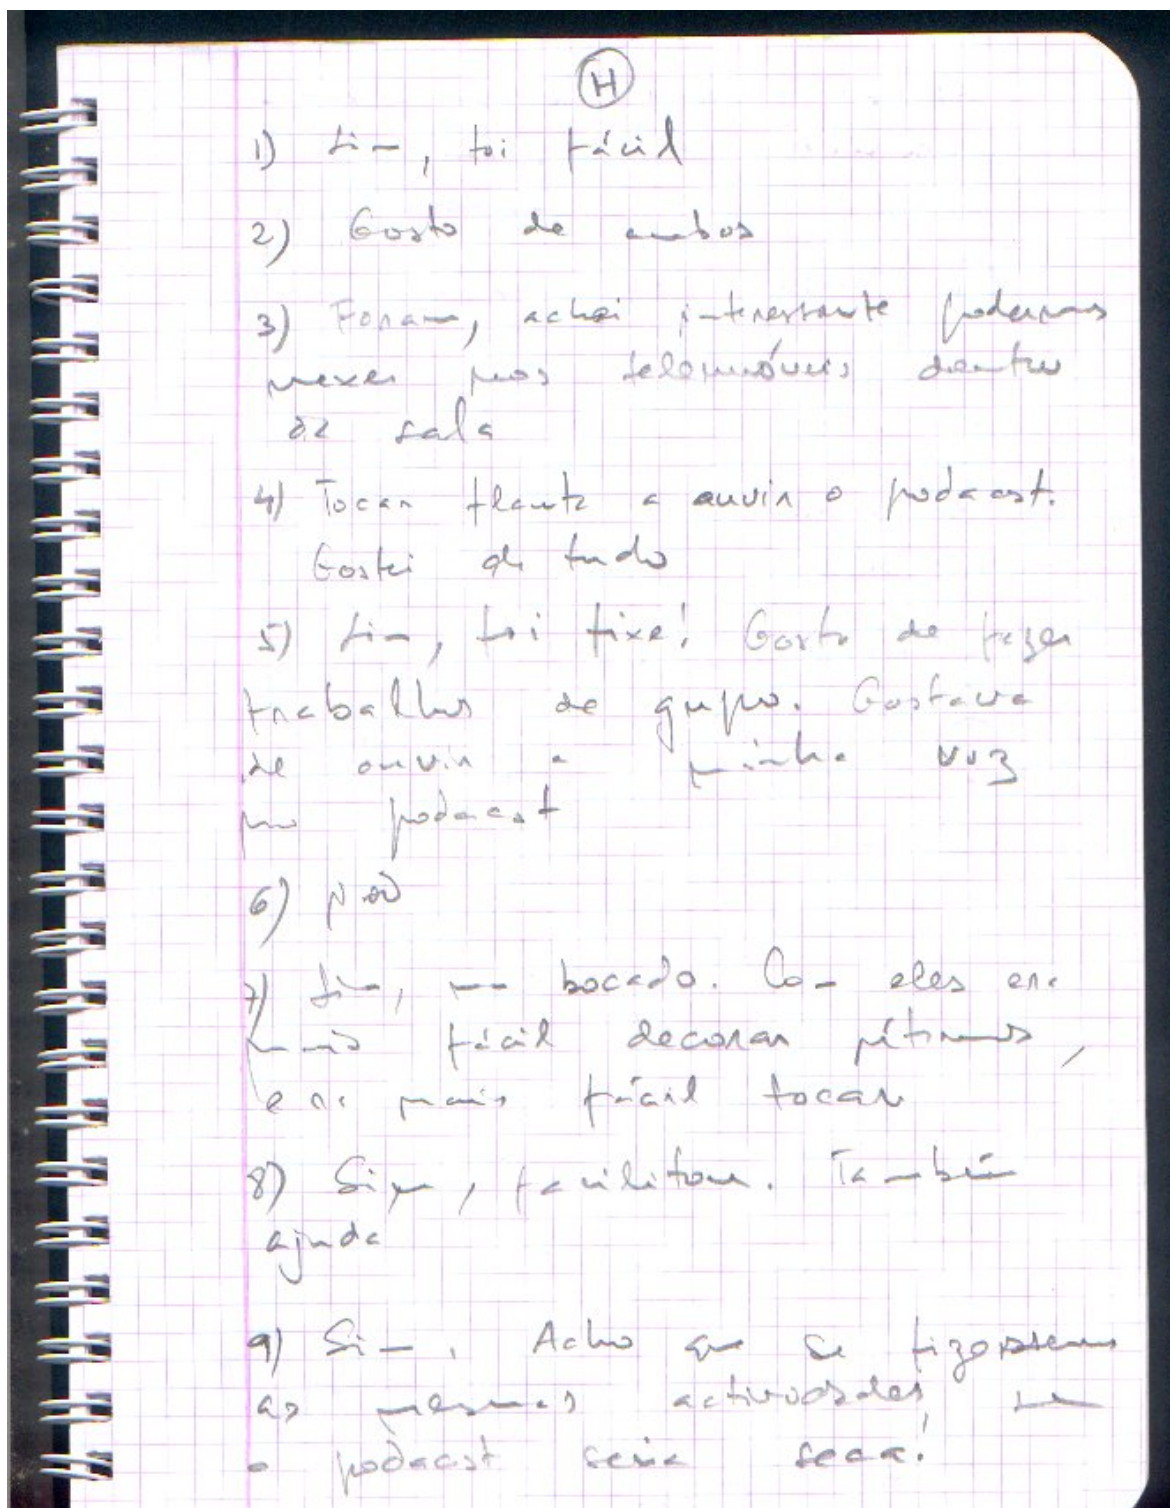 H
1) Sim, foi fácil
2) Gosto de ambos
3) Foram, achei interessante podermos
mexer nos telemóveis dentro
da sala
4) Tocar flauta a ouvir o podcast.
Gostei de tudo
5) Sim, foi fixe! Gosto de fazer
trabalhos de grupo. Gostava
de ouvir a minha voz
no podcast
6) Não
7) Sim, um bocado. Com eles era
mais fácil decorar ritmos,
era mais fácil tocar
8) Sim, facilitou. Também
ajuda
9) Sim. Acho que se fizessemos
as mesmas actividades sem
o podcast seria seca!